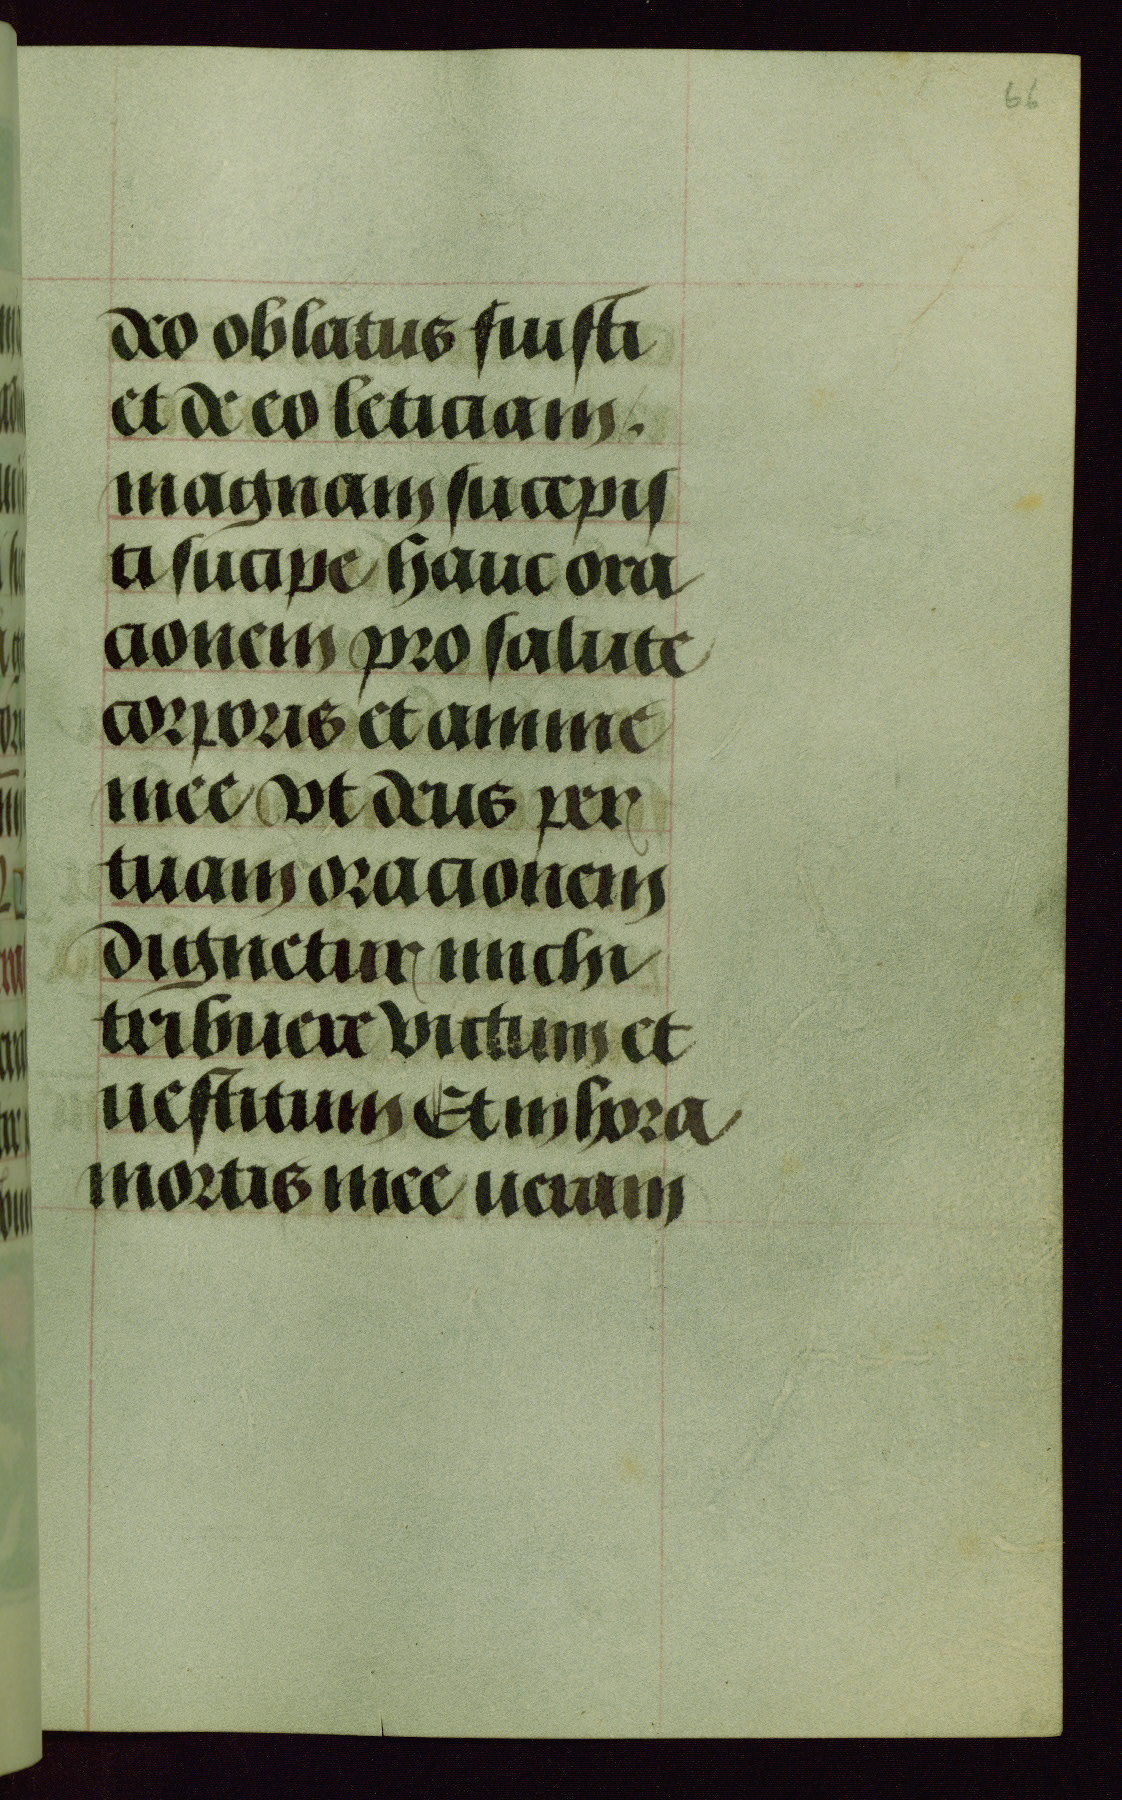 66
deo oblatus fuisti
et de eo leticiam.
magnam sucepis
ti sucipe hanc ora
cionem pro salute
corporis et anime
mee vt deus per
tuam oracionem
dignetur michi
tribuere victum et
uestitum Et in hora
mortis mee ueram